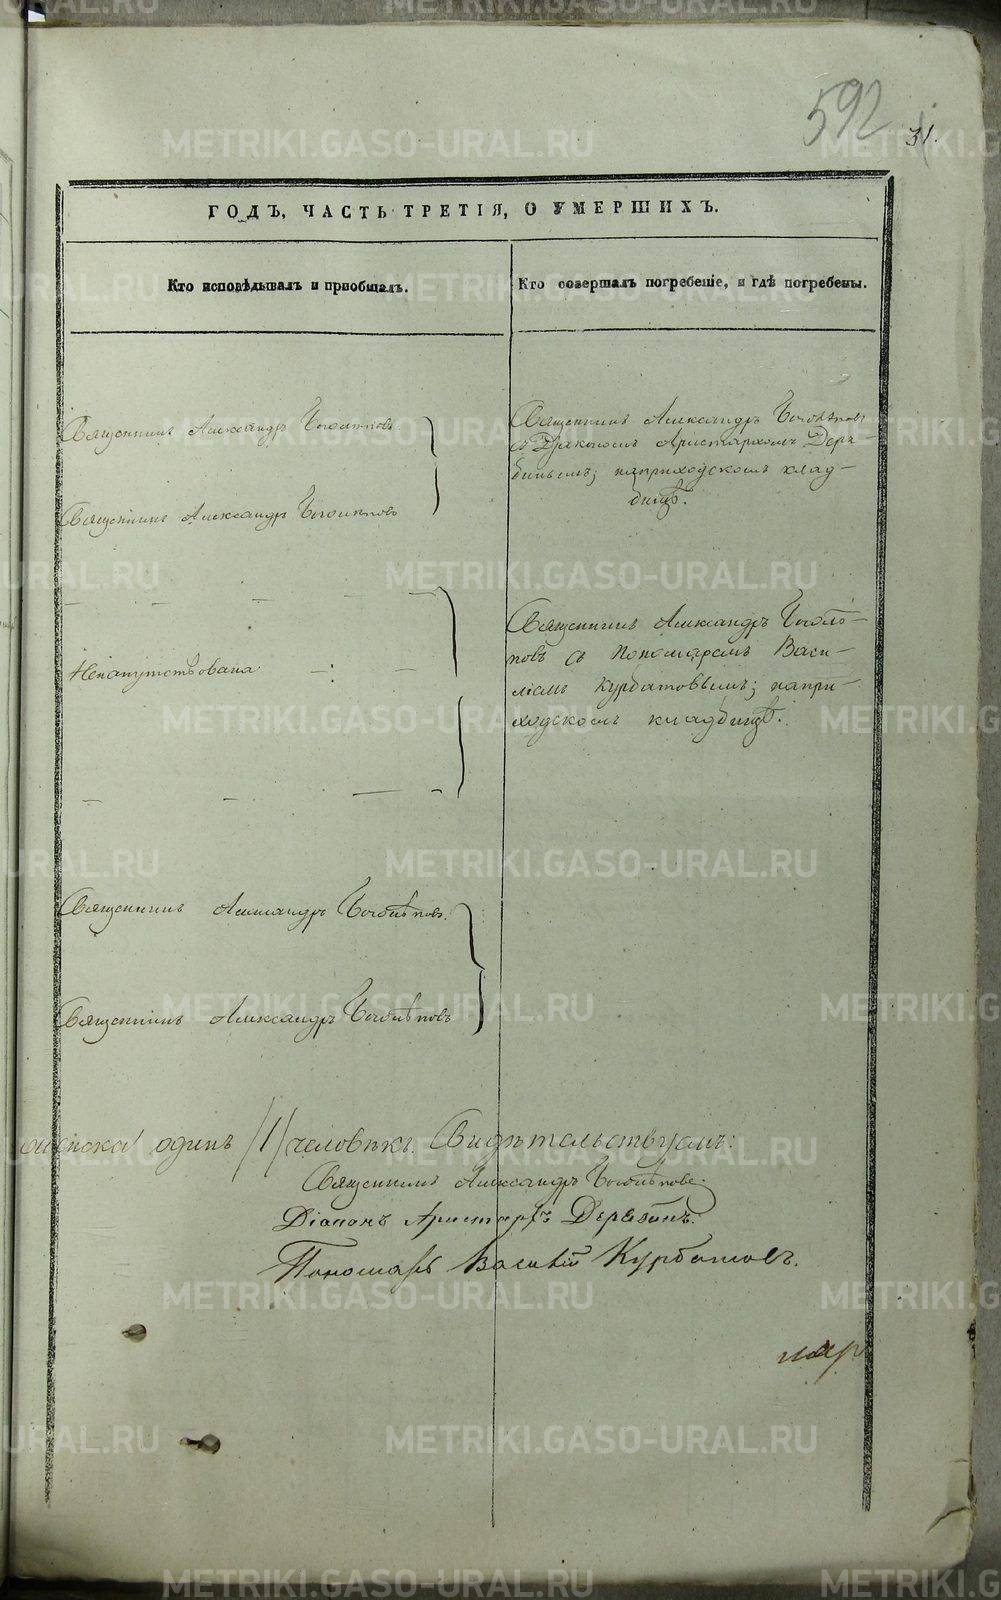 592
31.
ГОДЪ, ЧАСТЬ ТРЕТІЯ, О УМЕРШИХЪ.
Кто исповѣдывалъ и приобщалъ.
Кто совершалъ погребеніе, и гдѣ погребены.
Священникъ Александръ
Священникъ Александръ
Священникъ Александръ
съ Діакономъ Аристархомъ Деря-
бинымъ; на приходскомъ клад-
бищѣ.
Ненапутствована
Священникъ Александръ
съ Пономаремъ Васи-
ліемъ Курбатовымъ; на при-
ходскомъ кладбищѣ.
Священникъ Александръ
Священникъ Александръ
одинъ /1/ человѣкъ. Свидѣтельствуемъ:
Священникъ Александръ
Діаконъ Аристархъ Дерябинъ.
Пономарь Василій Курбатовъ.
METRIKI.GASO-URAL.RU